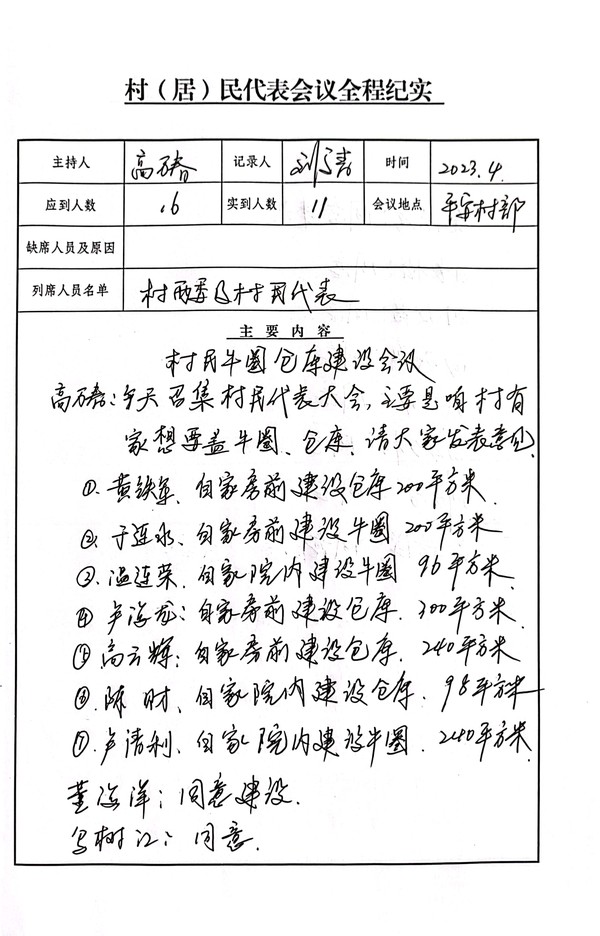 村（居）民代表会议全程纪实
主持人 高 记录人 刘 时间 2023.4.
应到人数 16 实到人数 11 会议地点 平安村部
缺席人员及原因
列席人员名单 村两委及村民代表
主要内容
村民牛圈仓库建设会议
高：今天召集村民代表大会，主要是咱村有
家想要盖牛圈、仓库，请大家发表意见
①黄铁军、自家房前建设仓库200平方米.
②于连水、自家房前建设牛圈200平方米
③温连荣、自家院内建设牛圈96平方米.
④卢海龙：自家房前建设仓库.300平方米.
⑤高云辉：自家房前建设仓库.240平方米
⑥陈财、自家院内建设仓库.98平方米
⑦卢清利、自家院内建设牛圈.240平方米.
董海洋：同意建设.
树江：同意.